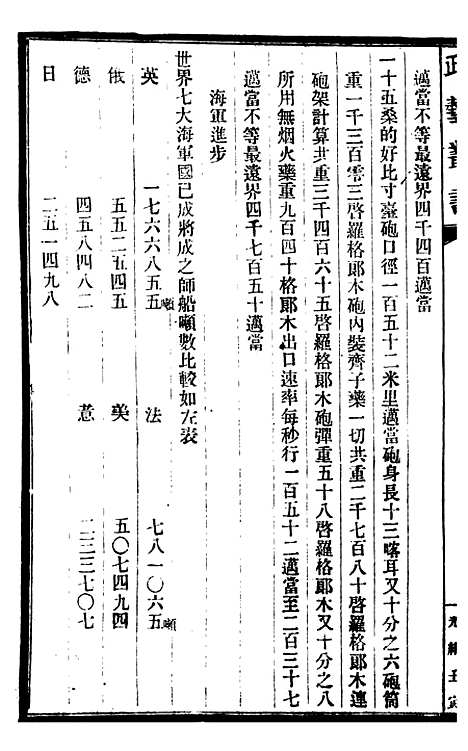 政藝叢書
邁當不等最遠界四千四百邁當
一十五桑的好比寸臺砲口徑一百五十二米里邁當砲身長十三喀耳又十分之六砲筒
重一千三百零三啓羅格郞木砲內裝齊子藥一切共重二千七百八十啓羅格郞木連
砲架計算共重三千四百六十五啓羅格郞木砲彈重五十八啓羅格郞木又十分之八
所用無烟火藥重九百四十格郞木出口速率每秒行一百五十二邁當至二百三十七
邁當不等最遠界四千七百五十邁當
海軍進步
世界七大海軍國已成將成之師船噸數比較如左表
英 一七六六八五五噸 法 七八一〇六五噸
俄 五五二五四五 美 五〇七四九四
德 四五八四八二 意 二三三七〇七
日 二五一四九八